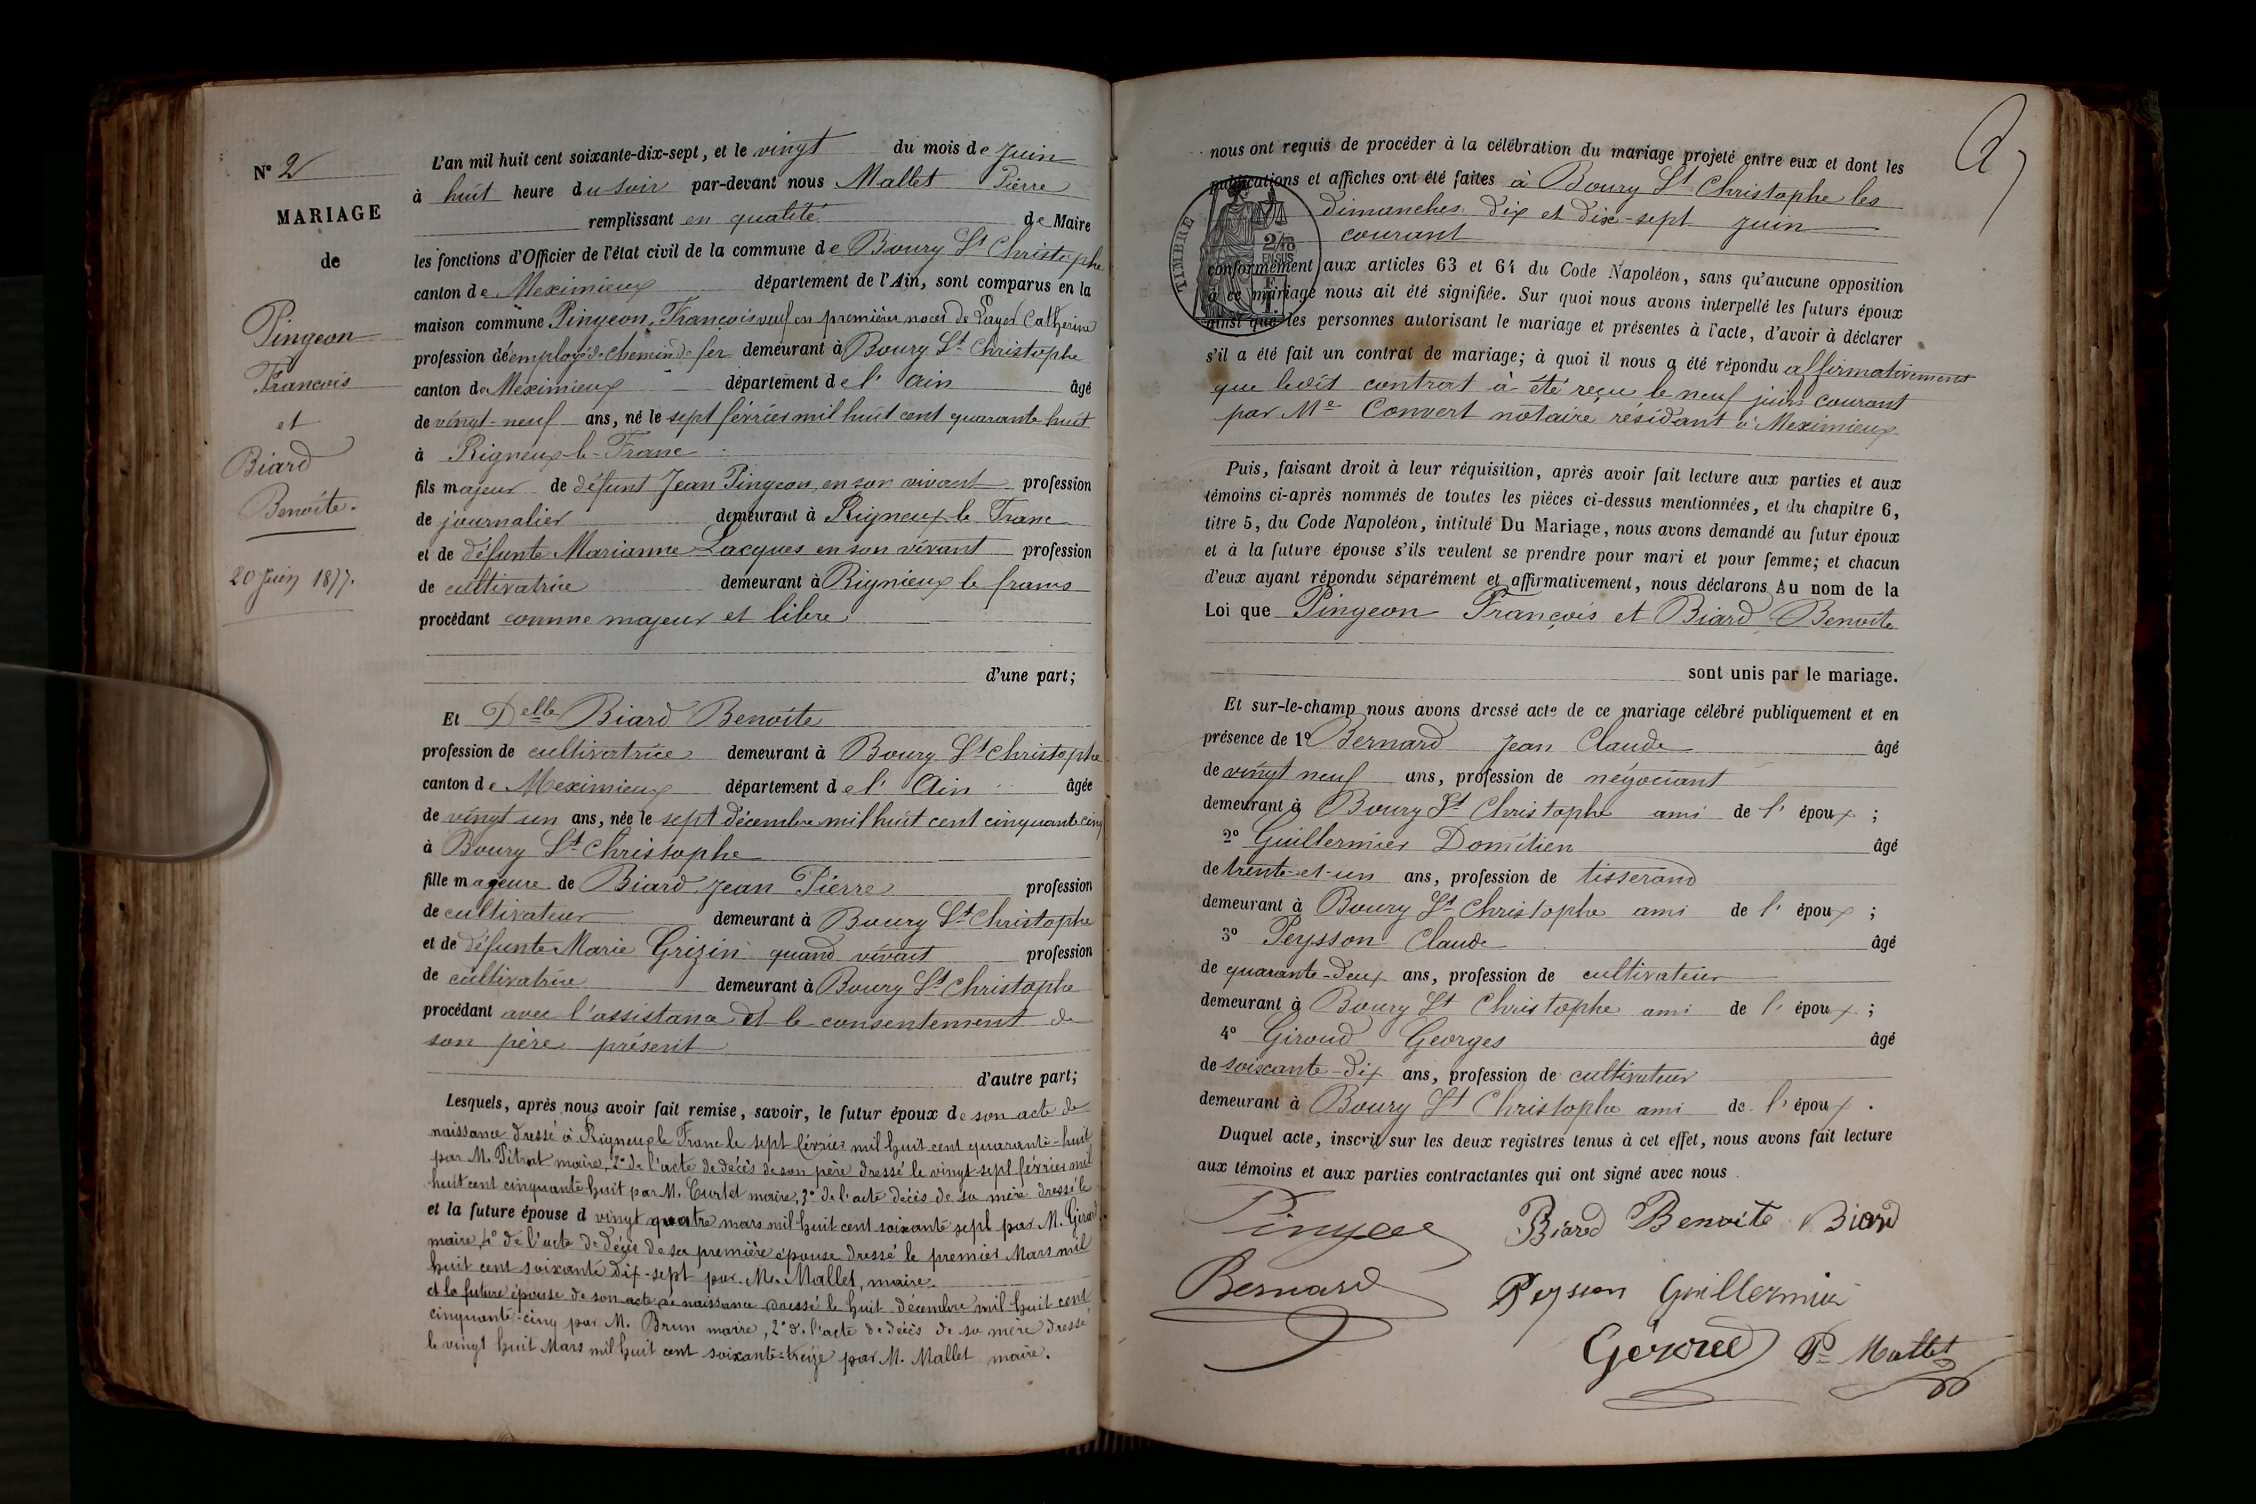 N° 2
MARIAGE
de
Pingeon
François
et
Biard
Benoîte.
20 Juin 1877.
L'an mil huit cent soixante-dix-sept, et le vingt du mois de Juin
à huit heure du soir par-devant nous Mallet Pierre
remplissant en qualité de Maire
les fonctions d'Officier de l'état civil de la commune de Boury St Christophe
canton de Meximieux département de l'Ain, sont comparus en la
maison commune Pingeon, François veuf en premières noces de Layes Catherine
profession d'employé de chemin de fer demeurant à Boury St Christophe
canton de Meximieux département de l'Ain âgé
de vingt-neuf ans, né le sept février mil huit cent quarante huit
à Rigneux-le-Franc
fils majeur de défunt Jean Pingeon, en son vivant profession
de journalier demeurant à Rigneux le Franc
et de défunte Marianne Lacques en son vivant profession
de cultivatrice demeurant à Rignieux le francs
procédant comme majeur et libre
d'une part;
Et Delle Biard Benoîte
profession de cultivatrice demeurant à Boury St Christophe
canton de Meximieux département de l'Ain âgée
de vingt un ans, née le sept décembre mil huit cent cinquante cinq
à Boury St Christophe
fille majeure de Biard Jean Pierre profession
de cultivateur demeurant à Boury St Christophe
et de défunte Marie Grizin quand vivait profession
de cultivatrice demeurant à Boury St Christophe
procédant avec l'assistance et le consentement de
son père présent
d'autre part;
Lesquels, après nous avoir fait remise, savoir, le futur époux de son acte de
naissance dressé à Rigneux le Franc le sept février mil huit cent quarante-huit
par M. Pitrat maire, 2° de l'acte de décès de son père dressé le vingt-sept février mil
huit cent cinquante huit par M. Curtet maire, 3° de l'acte décès de sa mère dressé le
et la future épouse d vingt quatre mars mil huit cent soixante sept par M. Girard
maire, 4° de l'acte de décès de sa première épouse dressé le premier Mars mil
huit cent soixante dix-sept par M. Mallet, maire.
et la future épouse de son acte de naissance dressé le huit décembre mil huit cent
cinquante-cinq par M. Brun maire, 2° de l'acte de décès de sa mère dressé
le vingt huit Mars mil huit cent soixante-treize par M. Mallet maire.
nous ont requis de procéder à la célébration du mariage projeté entre eux et dont les
publications et affiches ont été faites à Boury St Christophe les
dimanches dix et dix-sept juin
courant
TIMBRE
2/10
EN SUS
conformément aux articles 63 et 64 du Code Napoléon, sans qu'aucune opposition
à ce mariage nous ait été signifiée. Sur quoi nous avons interpellé les futurs époux
ainsi que les personnes autorisant le mariage et présentes à l'acte, d'avoir à déclarer
s'il a été fait un contrat de mariage; à quoi il nous a été répondu affirmativement
que ledit contrat à été reçu le neuf juin courant
par Me Convert notaire résidant à Meximieux
Puis, faisant droit à leur réquisition, après avoir fait lecture aux parties et aux
témoins ci-après nommés de toutes les pièces ci-dessus mentionnées, et du chapitre 6,
titre 5, du Code Napoléon, intitulé Du Mariage, nous avons demandé au futur époux
et à la future épouse s'ils veulent se prendre pour mari et pour femme; et chacun
d'eux ayant répondu séparément et affirmativement, nous déclarons Au nom de la
Loi que Pingeon François et Biard Benoîte
sont unis par le mariage.
Et sur-le-champ nous avons dressé acte de ce mariage célébré publiquement et en
présence de 1° Bernard Jean Claude âgé
de vingt neuf ans, profession de négociant
demeurant à Boury St Christophe ami de l'époux ;
2° Guillermier Domitien âgé
de trente-et-un ans, profession de tisserand
demeurant à Boury St Christophe ami de l'époux ;
3° Peysson Claude âgé
de quarante-deux ans, profession de cultivateur
demeurant à Boury St Christophe ami de l'époux ;
4° Giroud Georges âgé
de soixante-dix ans, profession de cultivateur
demeurant à Boury St Christophe ami de l'époux .
Duquel acte, inscrit sur les deux registres tenus à cet effet, nous avons fait lecture
aux témoins et aux parties contractantes qui ont signé avec nous.
Biard Benoite Biard
Bernard Peysson Guillermier
Pre Mallet